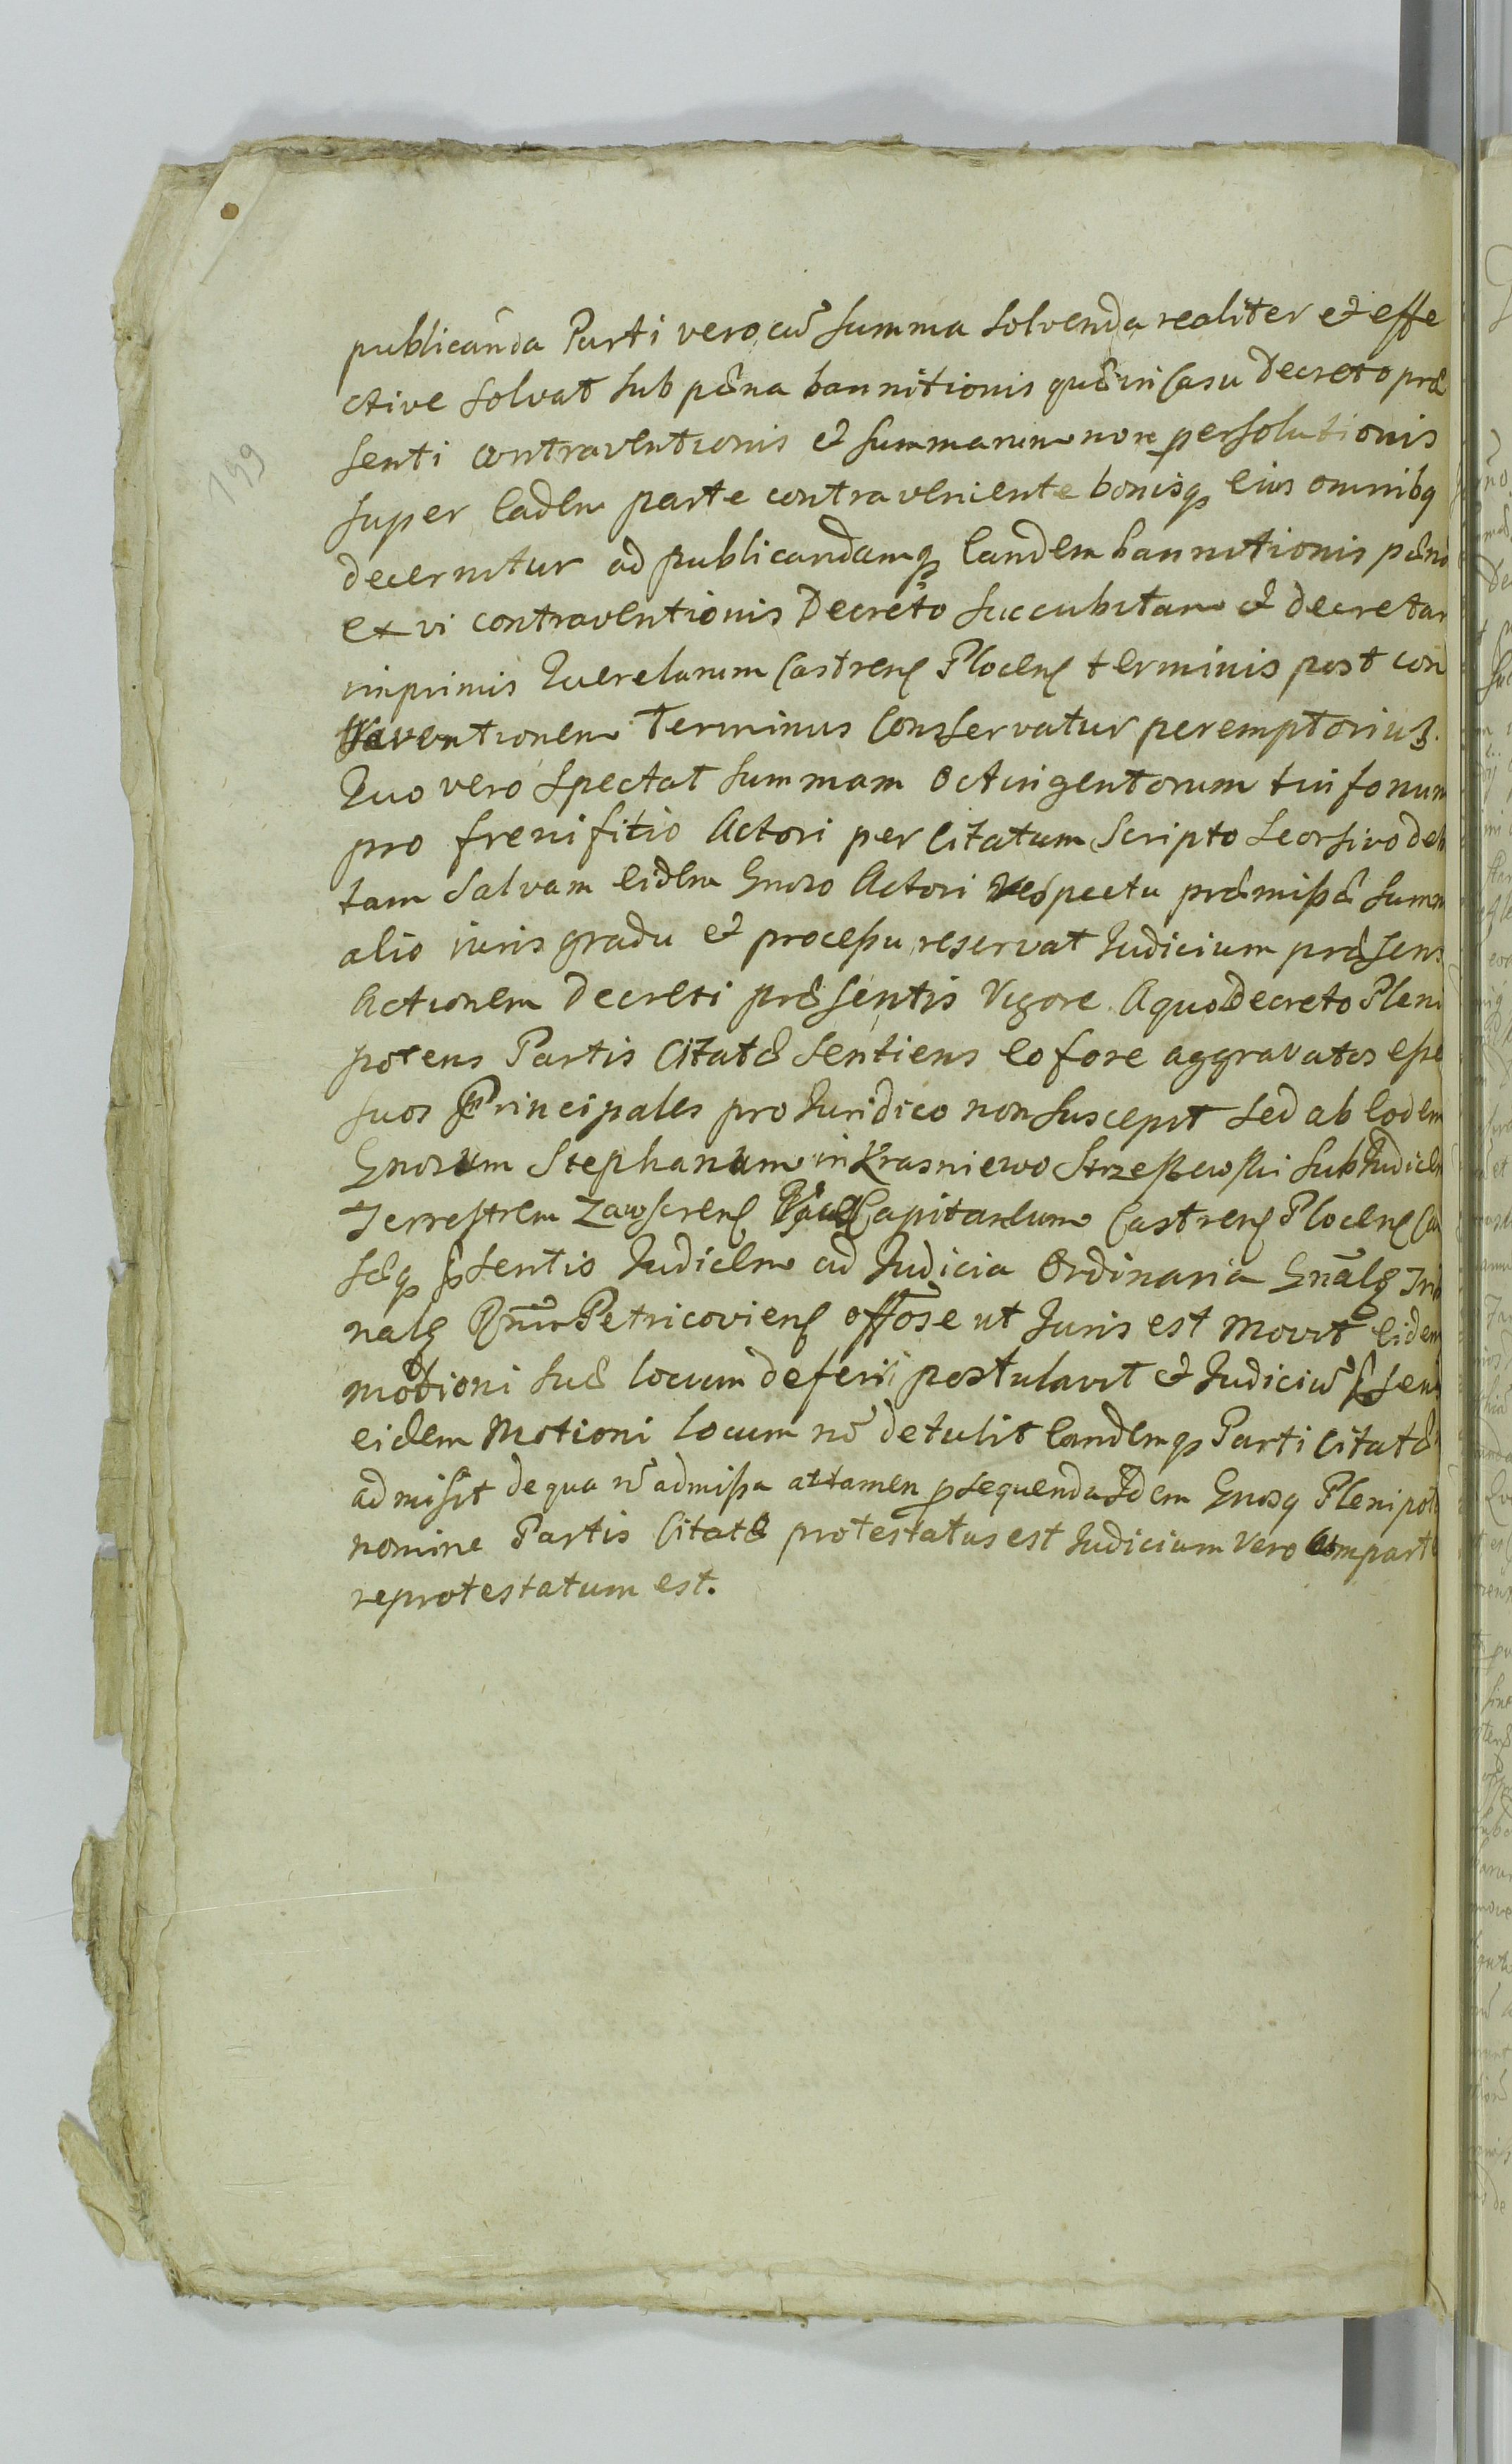 publicanda Parti vero cũ summa solvenda realiter et effe
ctive solvat sub pæna bannitionis quæ in Casu Decreto præ
senti contraventionis et summarum non persolutionis
super eadem parte contraveniente bonisq eius omnibq
decernitur ad publicandamq eandem bannitionis pæn
ex vi contraventionis Decreto succubitam et decretam
imprimis Querelarum Castrens Plocens terminis post con
traventionem Terminus Conservatur peremptorius.
Quo vero spectat summam Octingentorum tinfonum
pro frenifitio Actori per Citatum Scripto seorsivo deb
tam salvam eidem Gnoso Actori respectu præmissæ summ
alio iuris gradu et processu reservat Judicium præsens
Actionem Decreti præsentis Vigore A quo Decreto Pleni
potens Partis Citatæ sentiens eo fore aggravatos esse
suos Principales pro Juridico non suscepit sed ab eodem
Gnosum Stephanum in Krasniewo Strzeszewski SubJudicem
Terrestrem Zawscrens Capitaneum Castrens Plocens
sæq pſentis Judicem ad Judicia Ordinaria Gnãlq Tri
nalq Petricoviens offõse ut Juris est Movit eidem
motioni suæ locum deferri postulavit et Judiciũ pſens
eidem Motioni locum nõ detulit eandemq Parti Citatæ
admisit de qua nõ admissa attamen psequenda Idem Gnosq Plenipot
nomine Partis Citatæ protestatus est Judicium Vero
reprotestatum est.
199